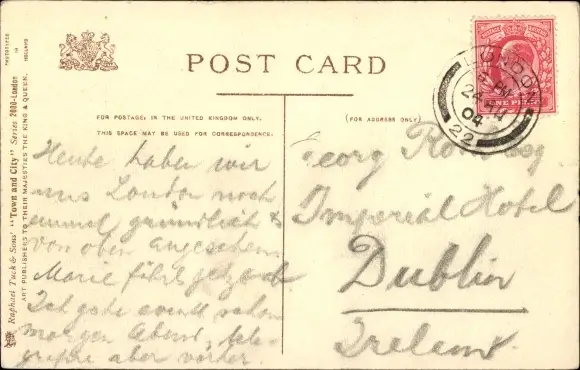 POST CARD
FOR POSTAGE IN THE UNITED KINGDOM ONLY.
THIS SPACE MAY BE USED FOR CORRESPONDENCE.
(FOR ADDRESS ONLY)
Raphael Tuck & Sons' "Town and City" Series 2000-London
ART PUBLISHERS TO THEIR MAJESTIES THE KING & QUEEN.
LONDON
PM
24
04
22
ONE PENNY
Heute haben wir
uns London noch
einmal gründlich
von oben angesehen
Marie fährt
Ich gehe schon
morgen Abend, tele-
grafire aber vorher.
Georg
Imperial Hotel
Dublin
Ireland.